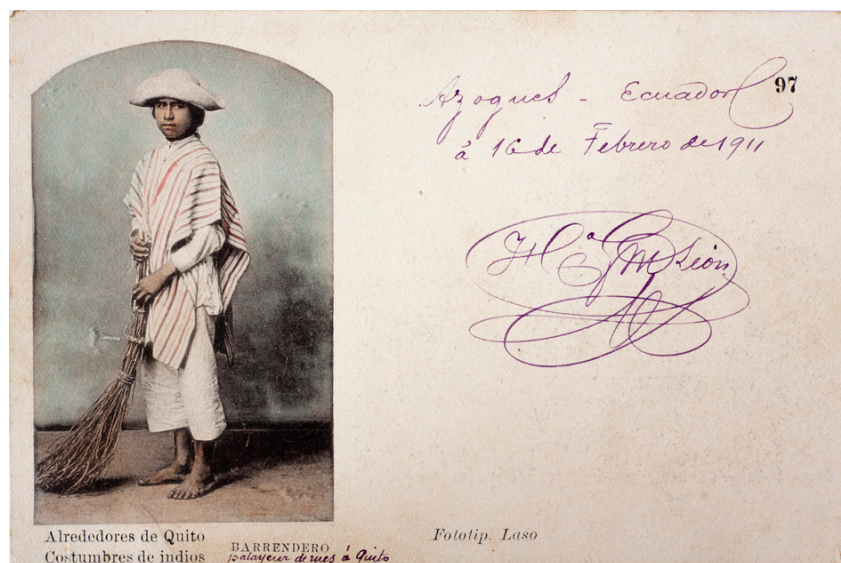 Azogues - Ecuador
97
á 16 de Febrero de 1911
León
Alrededores de Quito
Costumbres de indios
BARRENDERO
balayeur de rues á Quito
Fototip. Laso